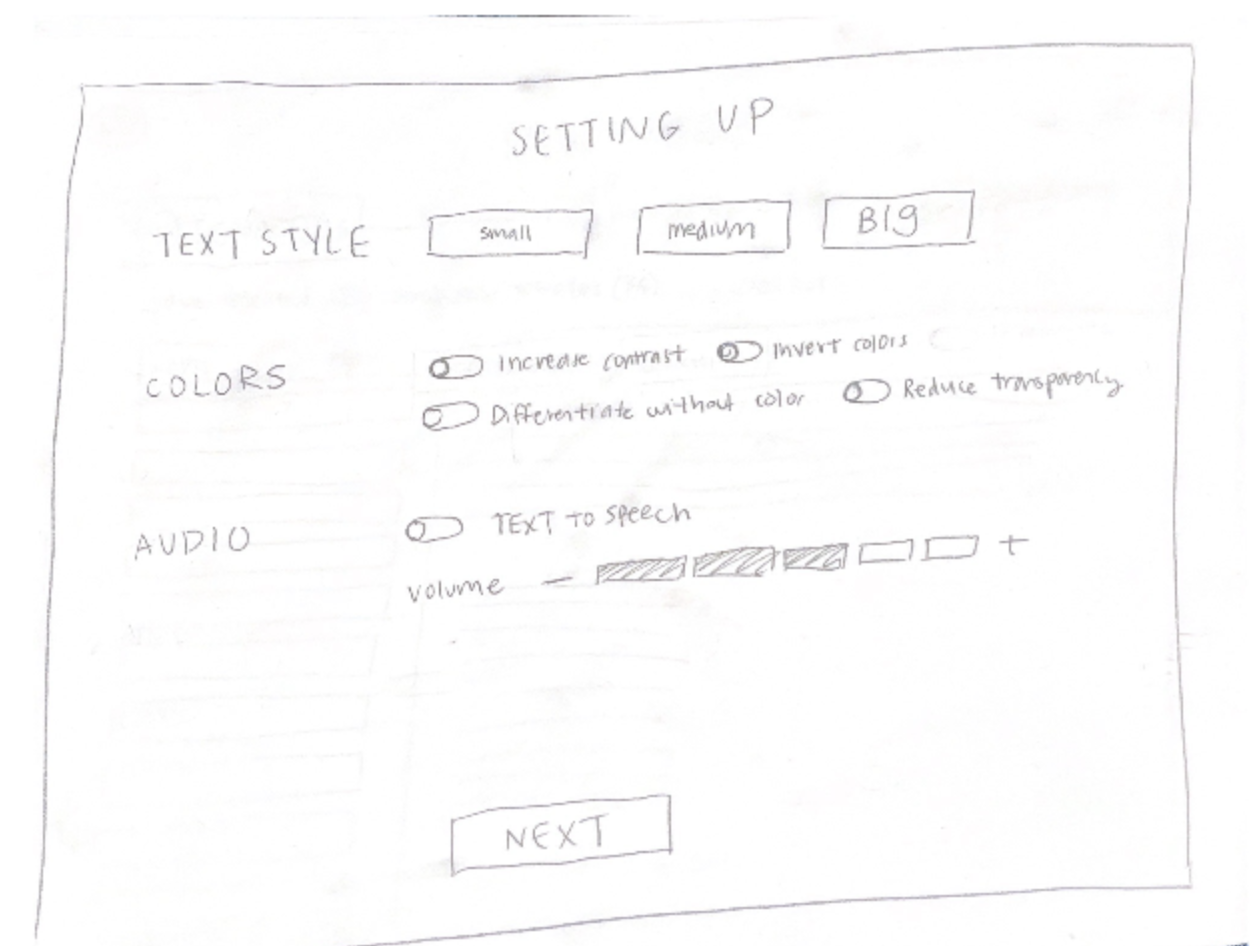 SETTING UP
TEXT STYLE small medium BIg
COLORS
Increase contrast Invert colors
Differentiate without color Reduce transparency
AUDIO
TEXT TO Speech
volume − +
NEXT